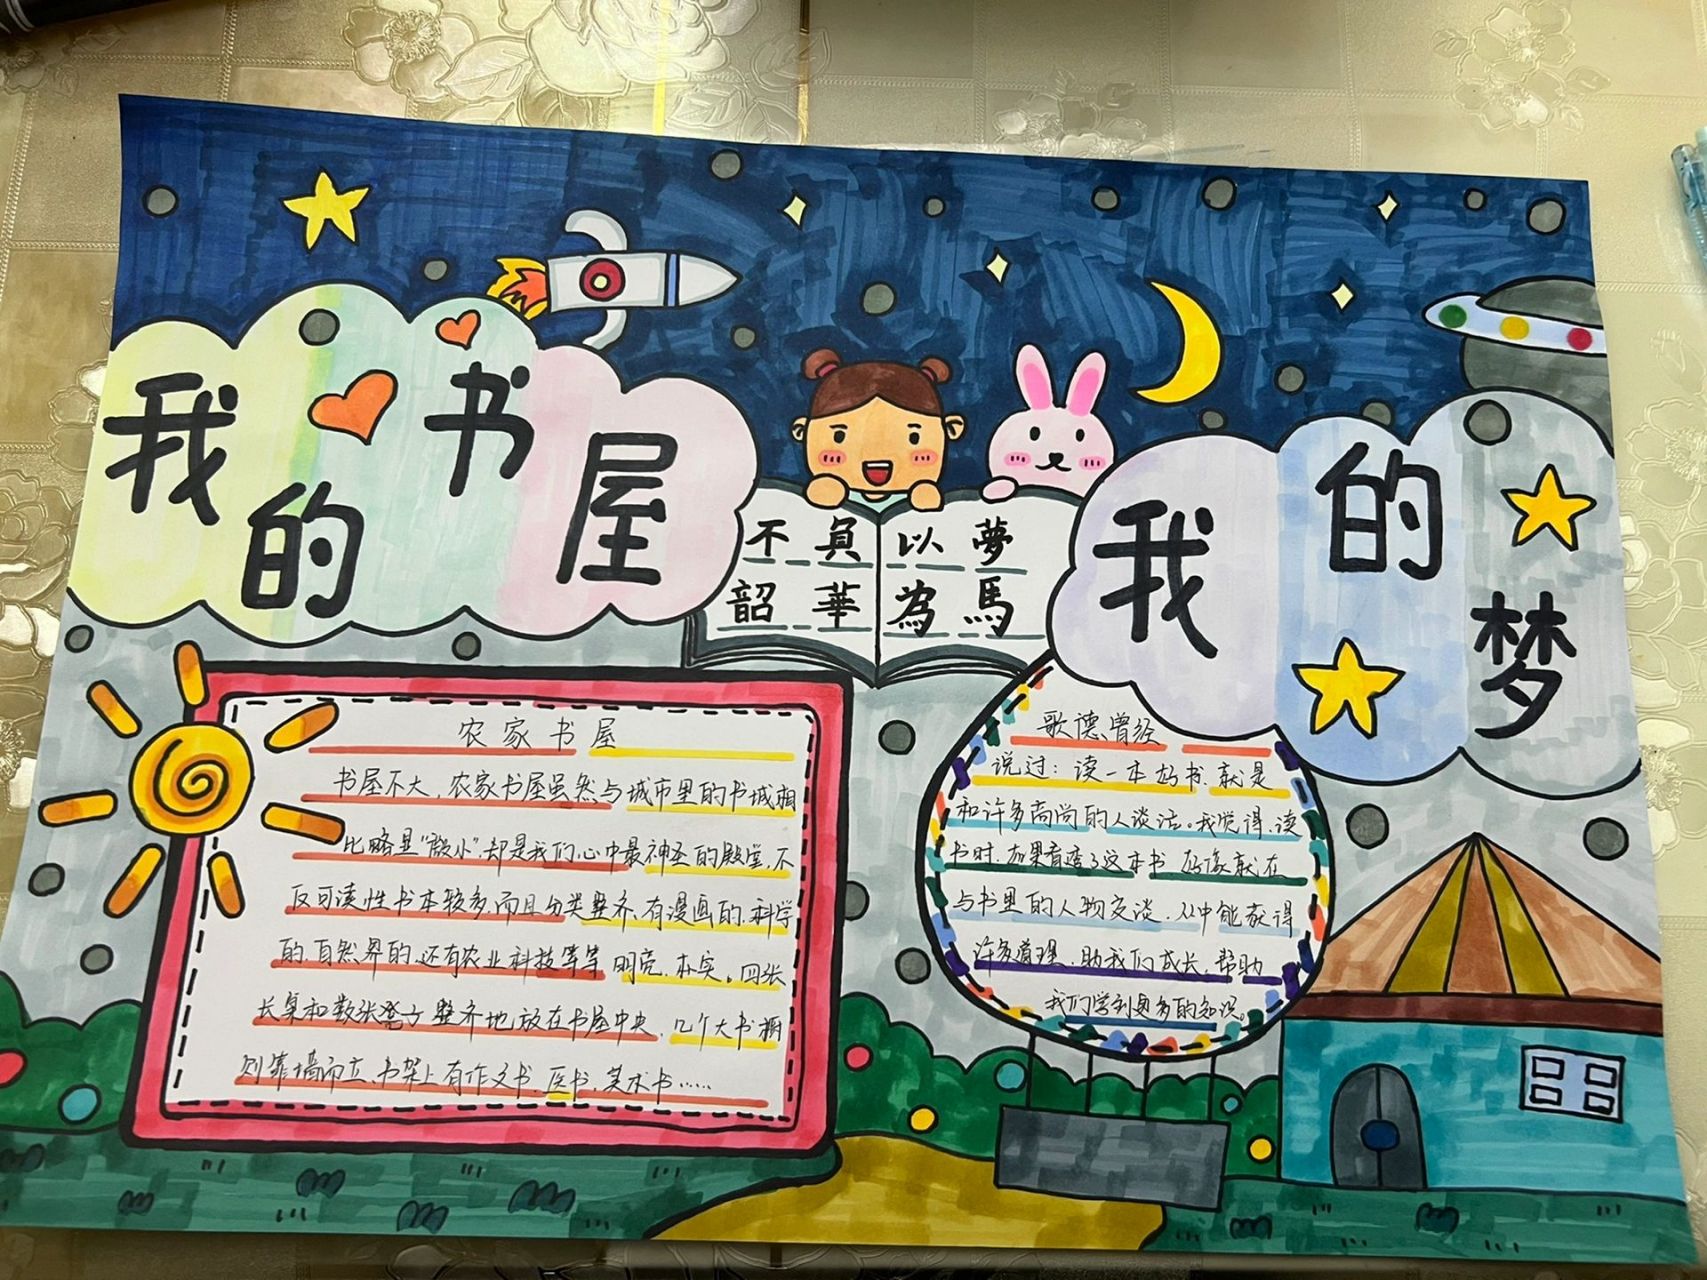 我的书屋
不負韶華
以夢為馬
我的梦
农家书屋
书屋不大,农家书屋虽然与城市里的书城相
比略显“微小”,却是我们心中最神圣的殿堂,不
反可读性书本较多,而且分类整齐,有漫画的,科学
的,自然界的,还有农业科技等等 明亮,朴实。四张
长桌和数张凳子整齐地放在书屋中央,几个大书橱
则靠墙而立,书架上有作文书,医书,美术书……
歌德曾经
说过:读一本好书,就是
和许多高尚的人谈话。我觉得,读
书时,如果看透了这本书,好像就在
与书里的人物交谈,从中能获得
许多道理,助我们成长,帮助
我们学到更多的知识。